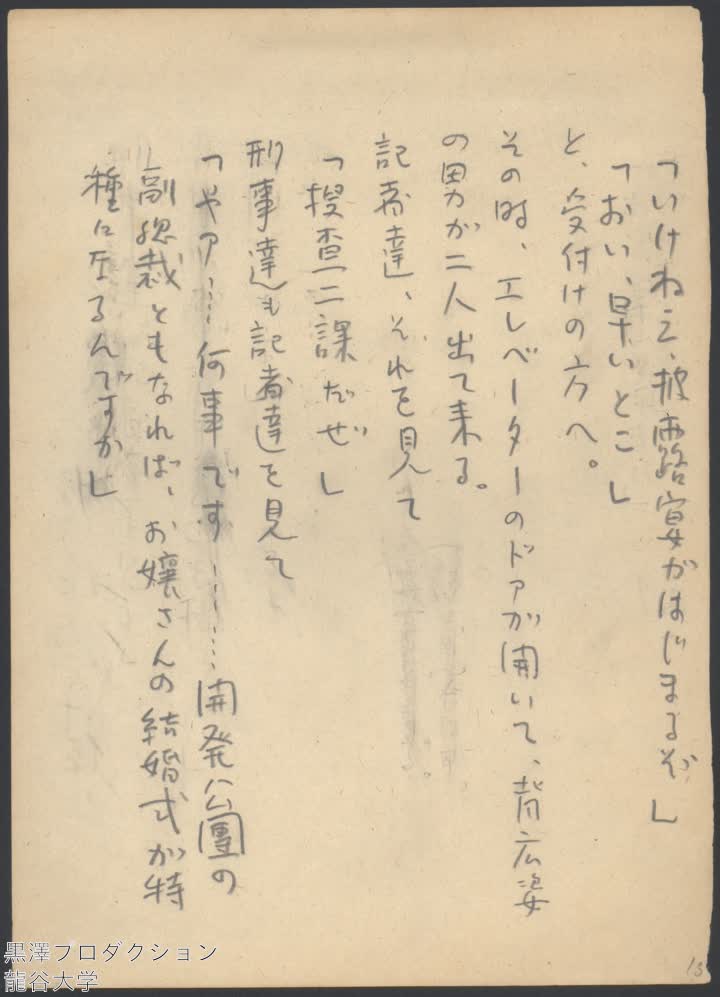 「いけねえ、披露宴がはじまるぞ」
「おい、早いとこ」
と、受付けの方へ。
その時、エレベーターのドアが開いて、背広姿
の男が二人出て来る。
記者達、それを見て
「捜査二課だぜ」
刑事達も記者達を見て
「やア……何事です………開発公團の
副総裁ともなれば、お嬢さんの結婚式が特
種になるんですか」
13
黒澤プロダクション
龍谷大学